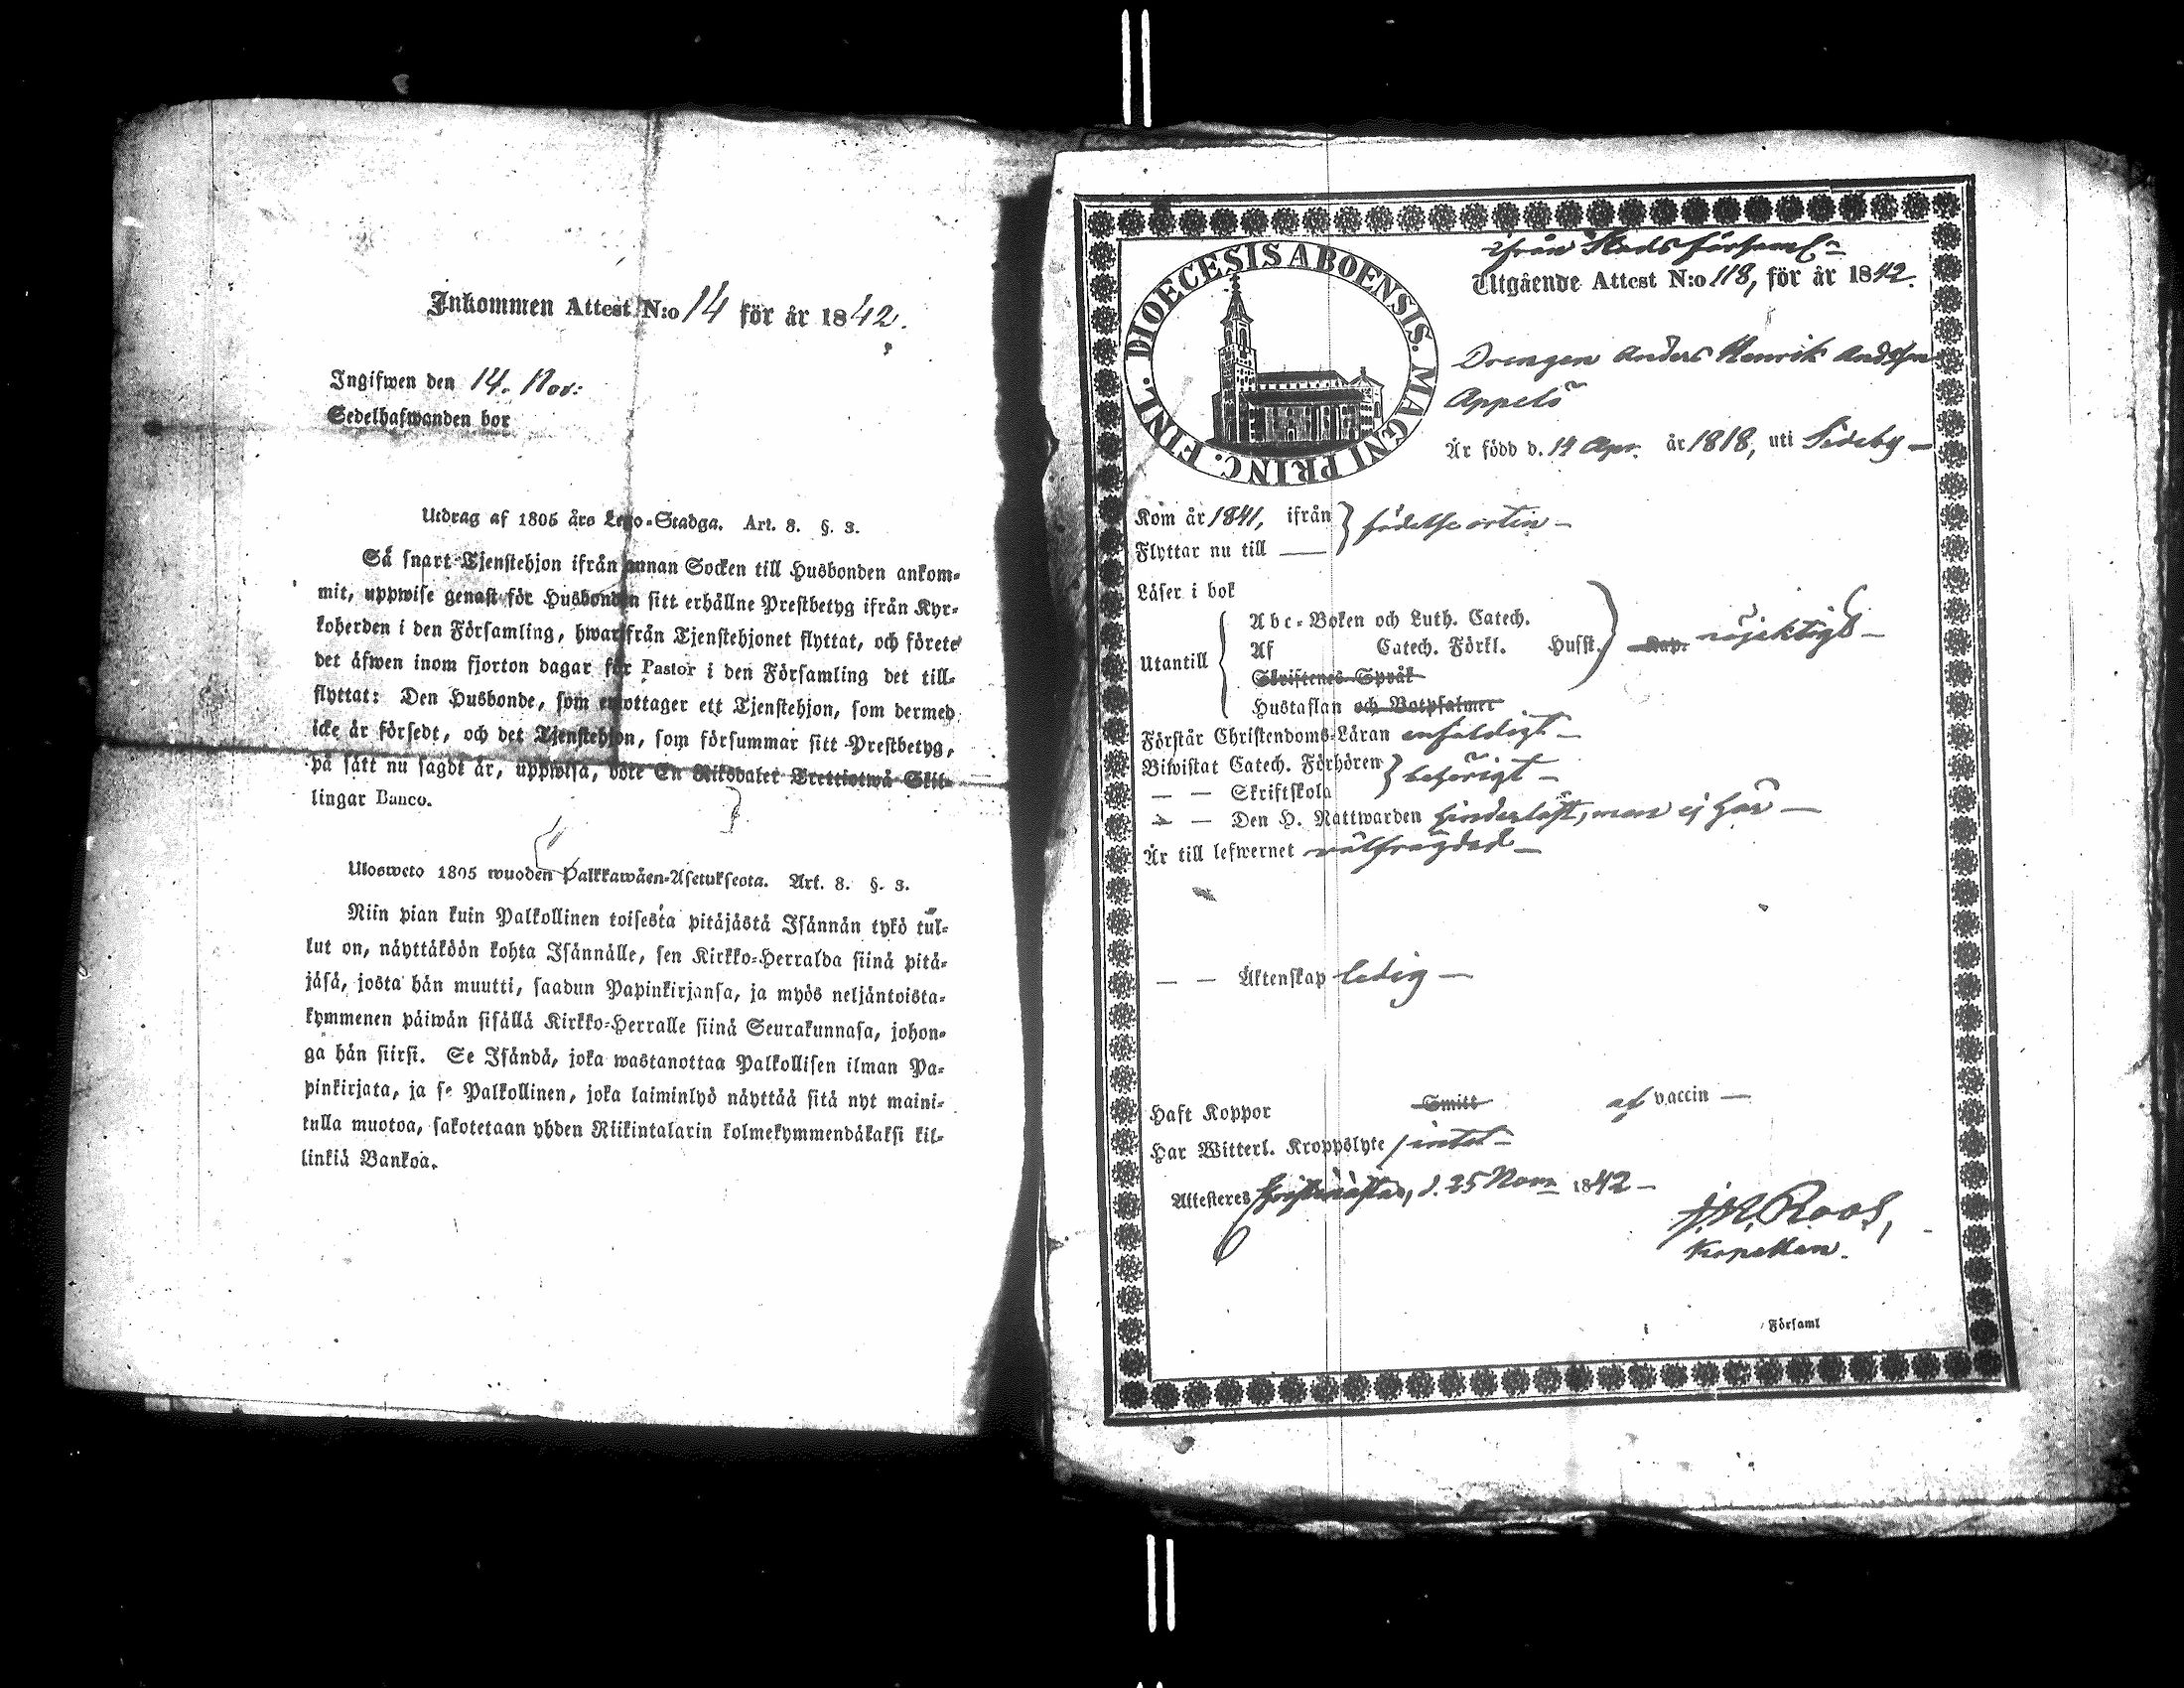 Inkommen Attest N:o 14 för år 1842.
Ingifwen den 14. Nov:
Sedelhafwanden bor
Utdrag af 1805 års Lego-Stadga. Art. 8. §. 3.
Så snart Tjenstehjon ifrån annan Socken till Husbonden ankom-
mit, uppwise genast för Husbonden sitt erhållne Prestbetyg ifrån Kyr-
koherden i den Församling, hwarifrån Tjenstehjonet flyttat, och förete
det äfwen inom fjorton dagar för Pastor i den Församling det till-
flyttat: Den Husbonde, som emottager ett Tjenstehjon, som dermed
icke är försedt, och det Tjenstehjon, som försummar sitt Prestbetyg,
på sätt nu sagdt är, uppwisa, böte En Riksdaler Trettiotwå Skil-
lingar Banco.
Ulosweto 1805 wuoden Palkkawäen-Asetuksesta. Art. 8. §. 3.
Niin pian kuin Palkollinen toisesta pitäjästä Isännän tykö tul-
lut on, näyttäköön kohta Isännälle, sen Kirkko-Herralda siinä pitä-
jäsä, josta hän muutti, saadun Papinkirjansa, ja myös neljäntoista-
kymmenen päiwän sisällä Kirkko-Herralle siinä Seurakunnasa, johon-
ga hän siirsi. Se Isändä, joka wastanottaa Palkollisen ilman Pa-
pinkirjata, ja se Palkollinen, joka laiminlyö näyttää sitä nyt maini-
tulla muotoa, sakotetaan yhden Riikintalarin kolmekymmendäkaksi kil-
linkiä Bankoa.
DIOECESIS ABOENSIS. MAGNI PRINC. FINL.
ifrån Stads församl:
Utgående Attest N:o 118, för år 1842.
Drengen Anders Henrik Andsson
Appelö
Är född d. 14 Apr. år 1818, uti Sideby
Kom år 1841, ifrån } födelse orten
Flyttar nu till
Läser i bok
Abc-Boken och Luth. Catech.
Utantill Af Catech. Förkl. Husft. Kap. nöjaktigt
Skriftenes Språk
Hustaflan och Botpsalmer
Förstår Christendoms-Läran enfaldigt
Biwistat Catech. Förhören } behörigt
— — Skriftskola
— — Den H. Nattwarden hinderlöst, men ej här
Är till lefwernet wälfrägdad
— — Äktenskap ledig
Haft Koppor Smitt af vaccin
Har Witterl. Kroppslyte intet
Attesteres Christinæstad, d. 25 Nov. 1842
Roos,
Kapellan.
i Församl